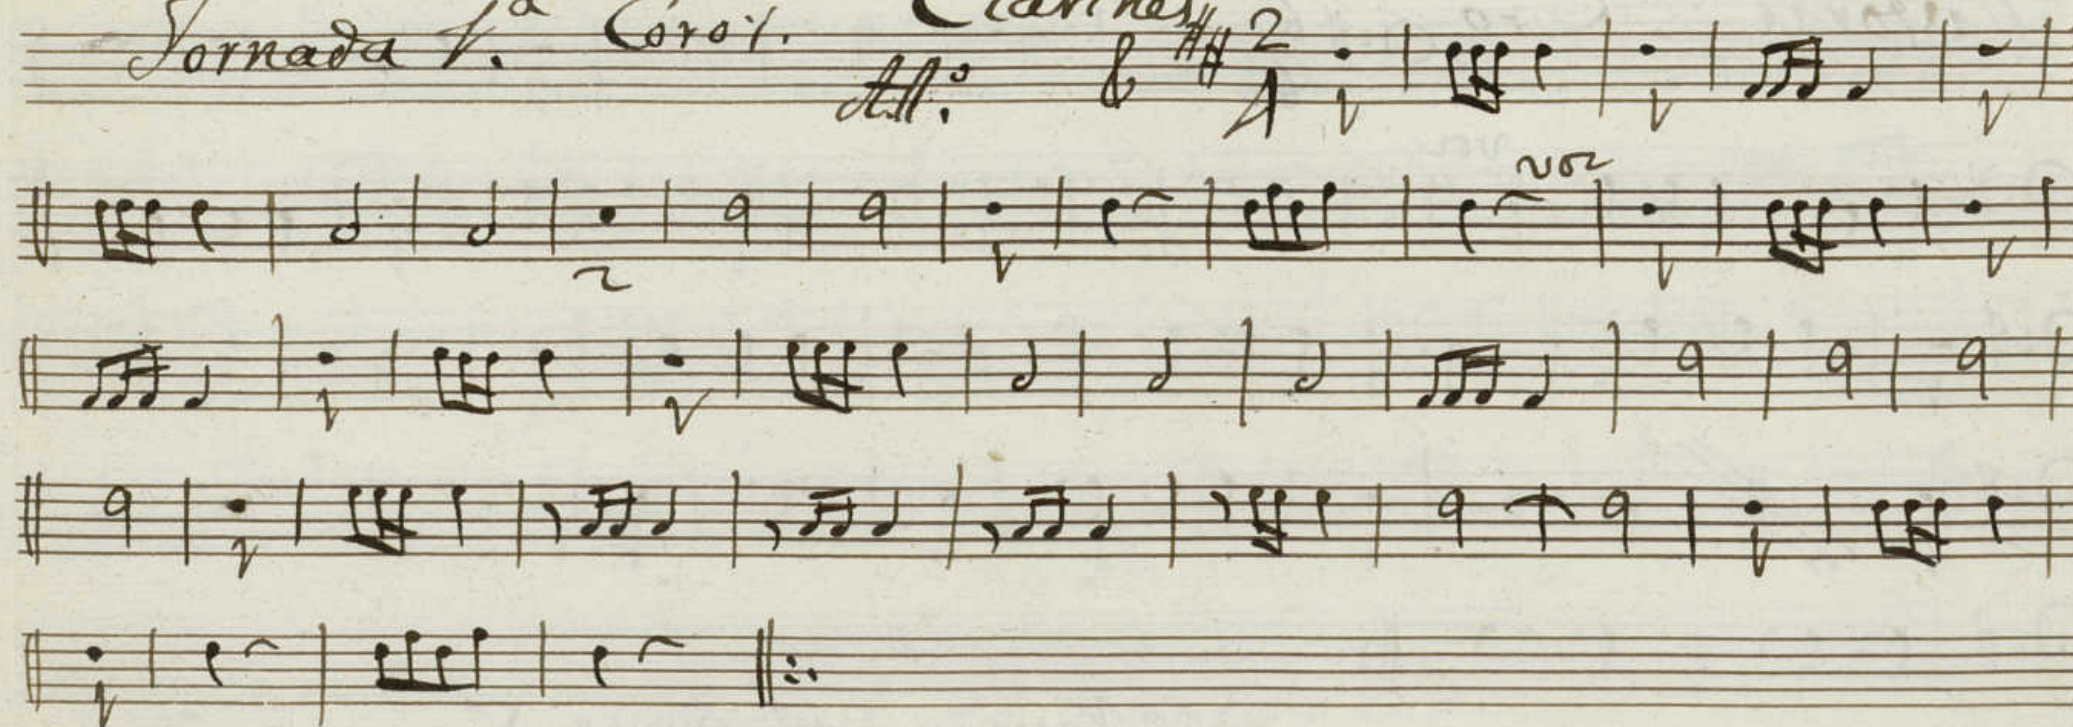 Jornada 1.ª Coro 1. Clarines
All.º 2 4
voz
2